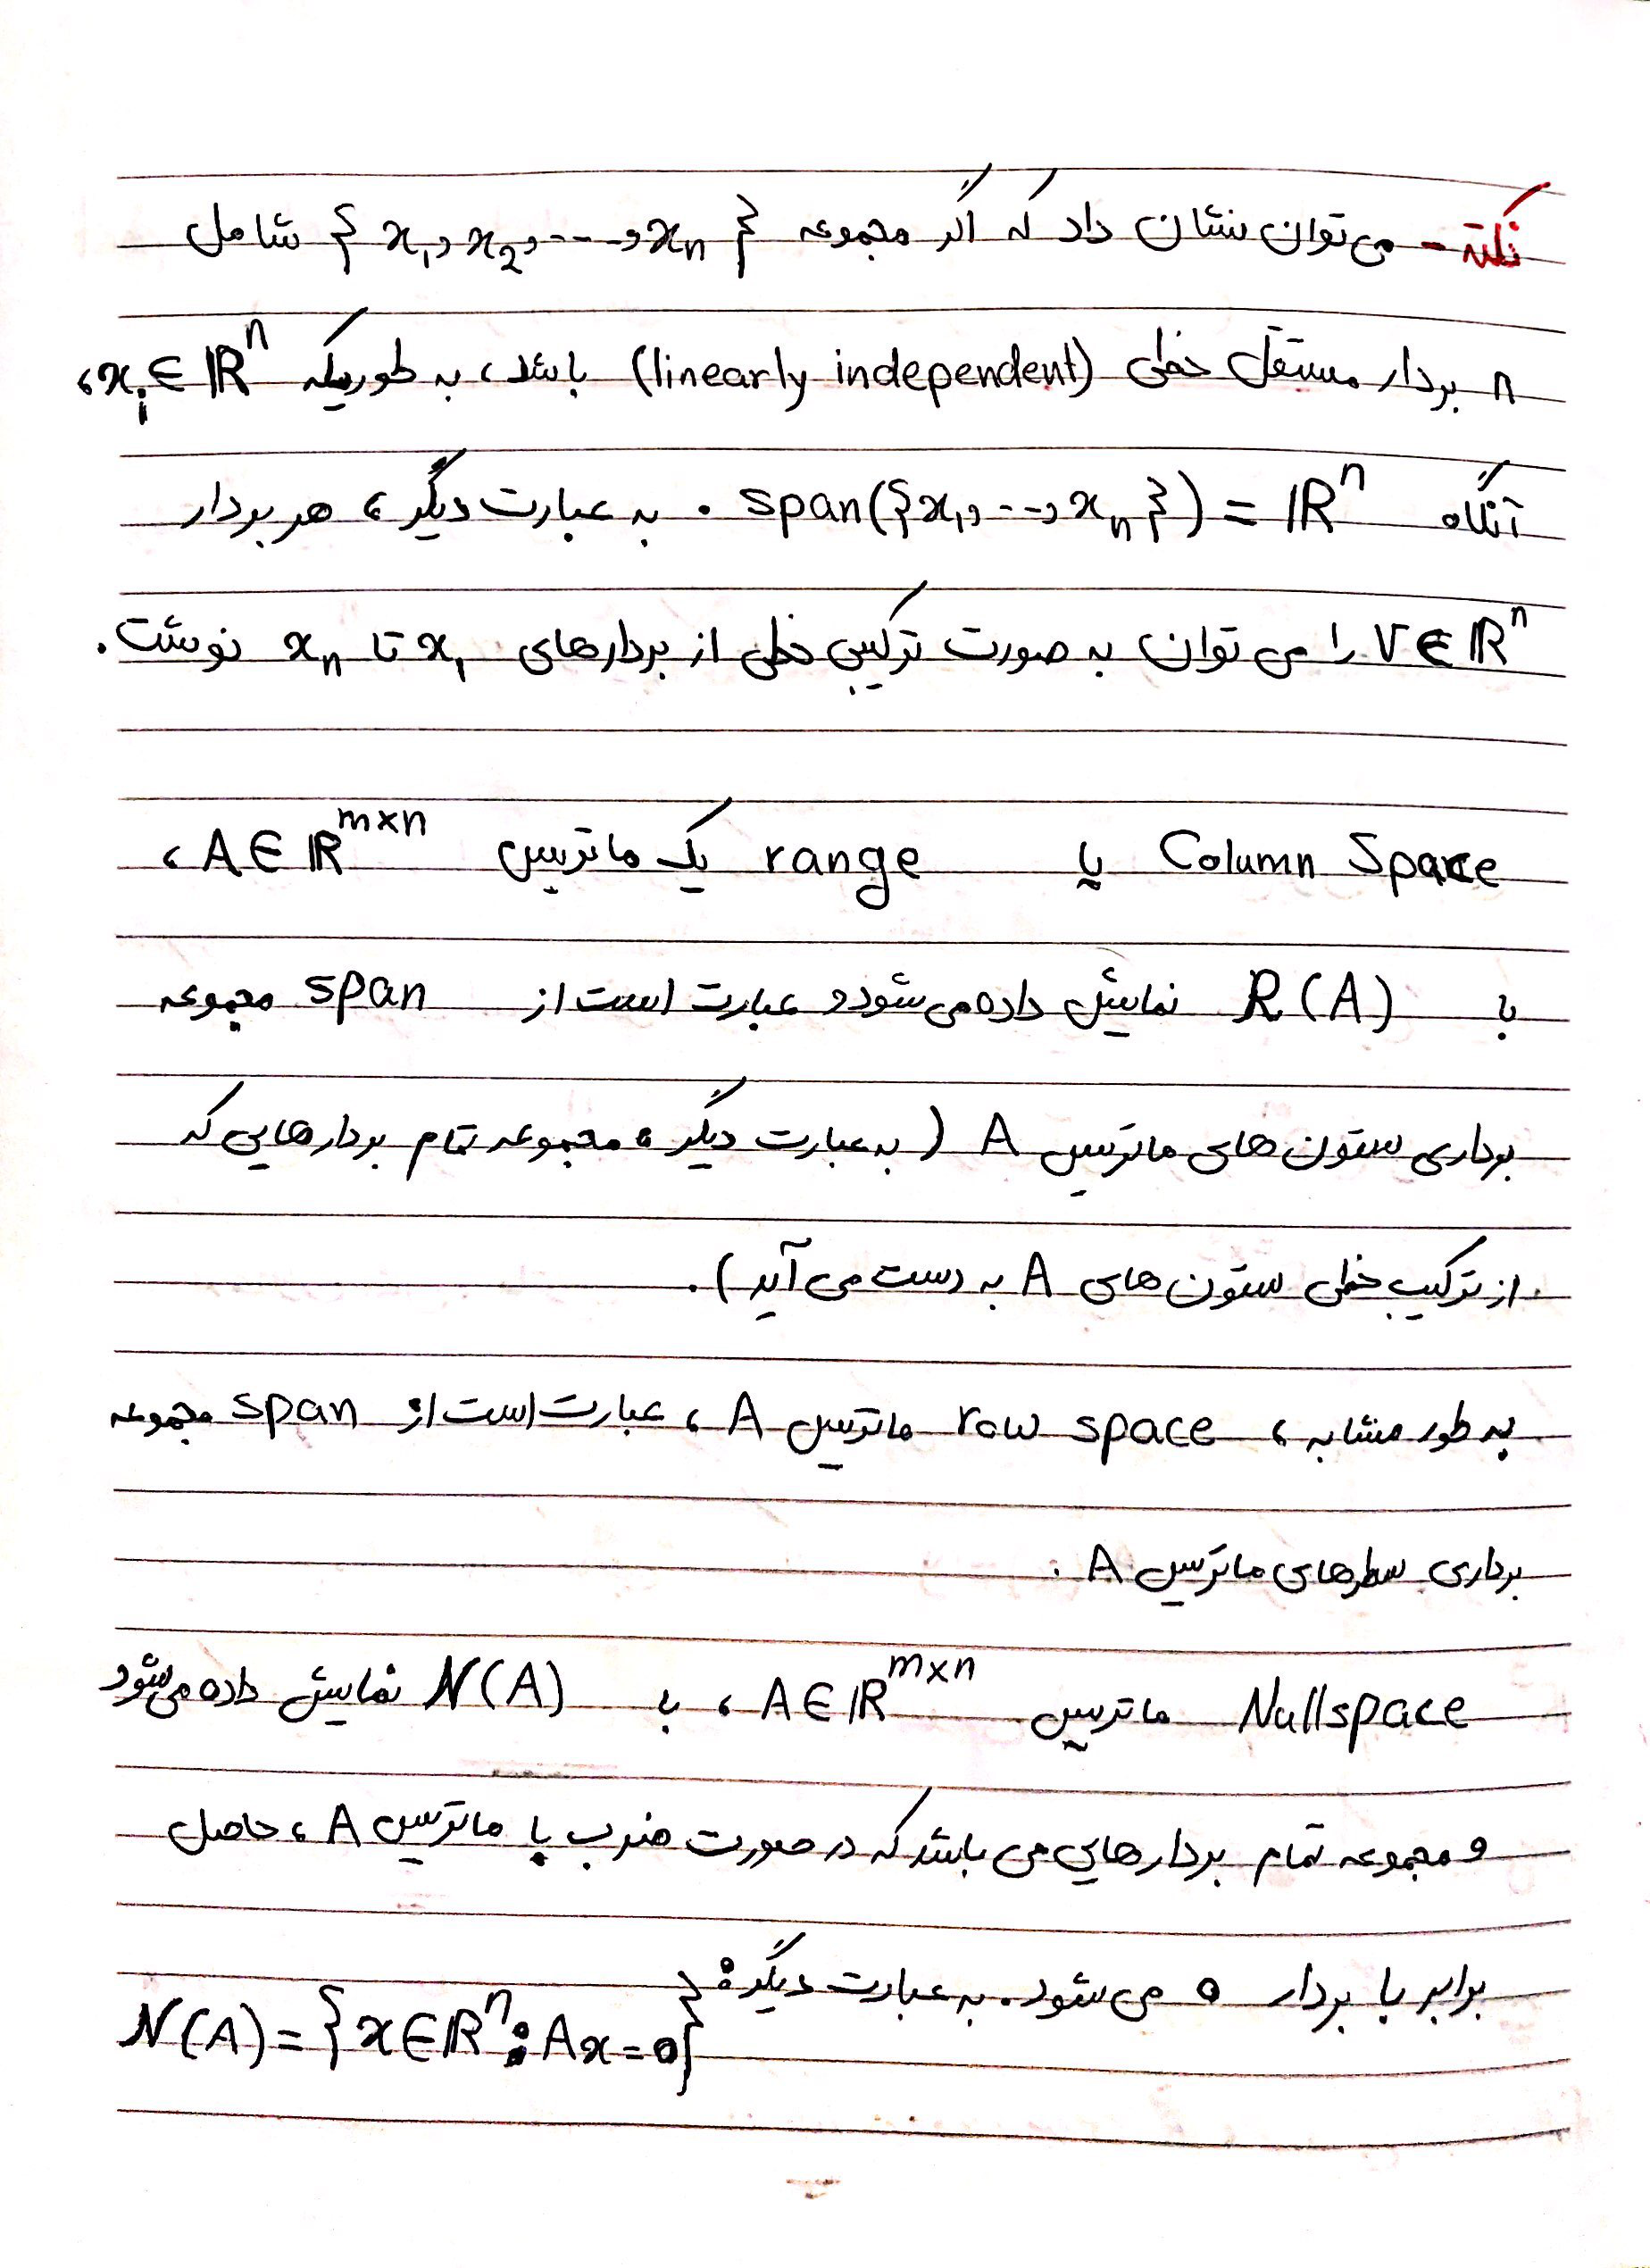 نکته - می توان نشان داد که اگر مجموعه {x₁, x₂, ..., xₙ} شامل
n بردار مستقل خطی (linearly independent) باشد، به طوریکه xᵢ ∈ ℝⁿ،
آنگاه span({x₁, ..., xₙ}) = ℝⁿ . به عبارت دیگر، هر بردار
v ∈ ℝⁿ را می توان به صورت ترکیبی خطی از بردارهای x₁ تا xₙ نوشت.
Column Space یا range یک ماتریس A ∈ ℝᵐˣⁿ،
با R(A) نمایش داده می شود و عبارت است از span مجموعه
برداری ستون های ماتریس A (به عبارت دیگر: مجموعه تمام بردارهایی که
از ترکیب خطی ستون های A به دست می آید).
به طور مشابه، row space ماتریس A، عبارت است از span مجموعه
برداری سطرهای ماتریس A.
Nullspace ماتریس A ∈ ℝᵐˣⁿ، با N(A) نمایش داده می شود
و مجموعه تمام بردارهایی می باشد که در صورت ضرب با ماتریس A، حاصل
برابر با بردار 0 می شود. به عبارت دیگر:
N(A) = {x ∈ ℝⁿ : Ax = 0}